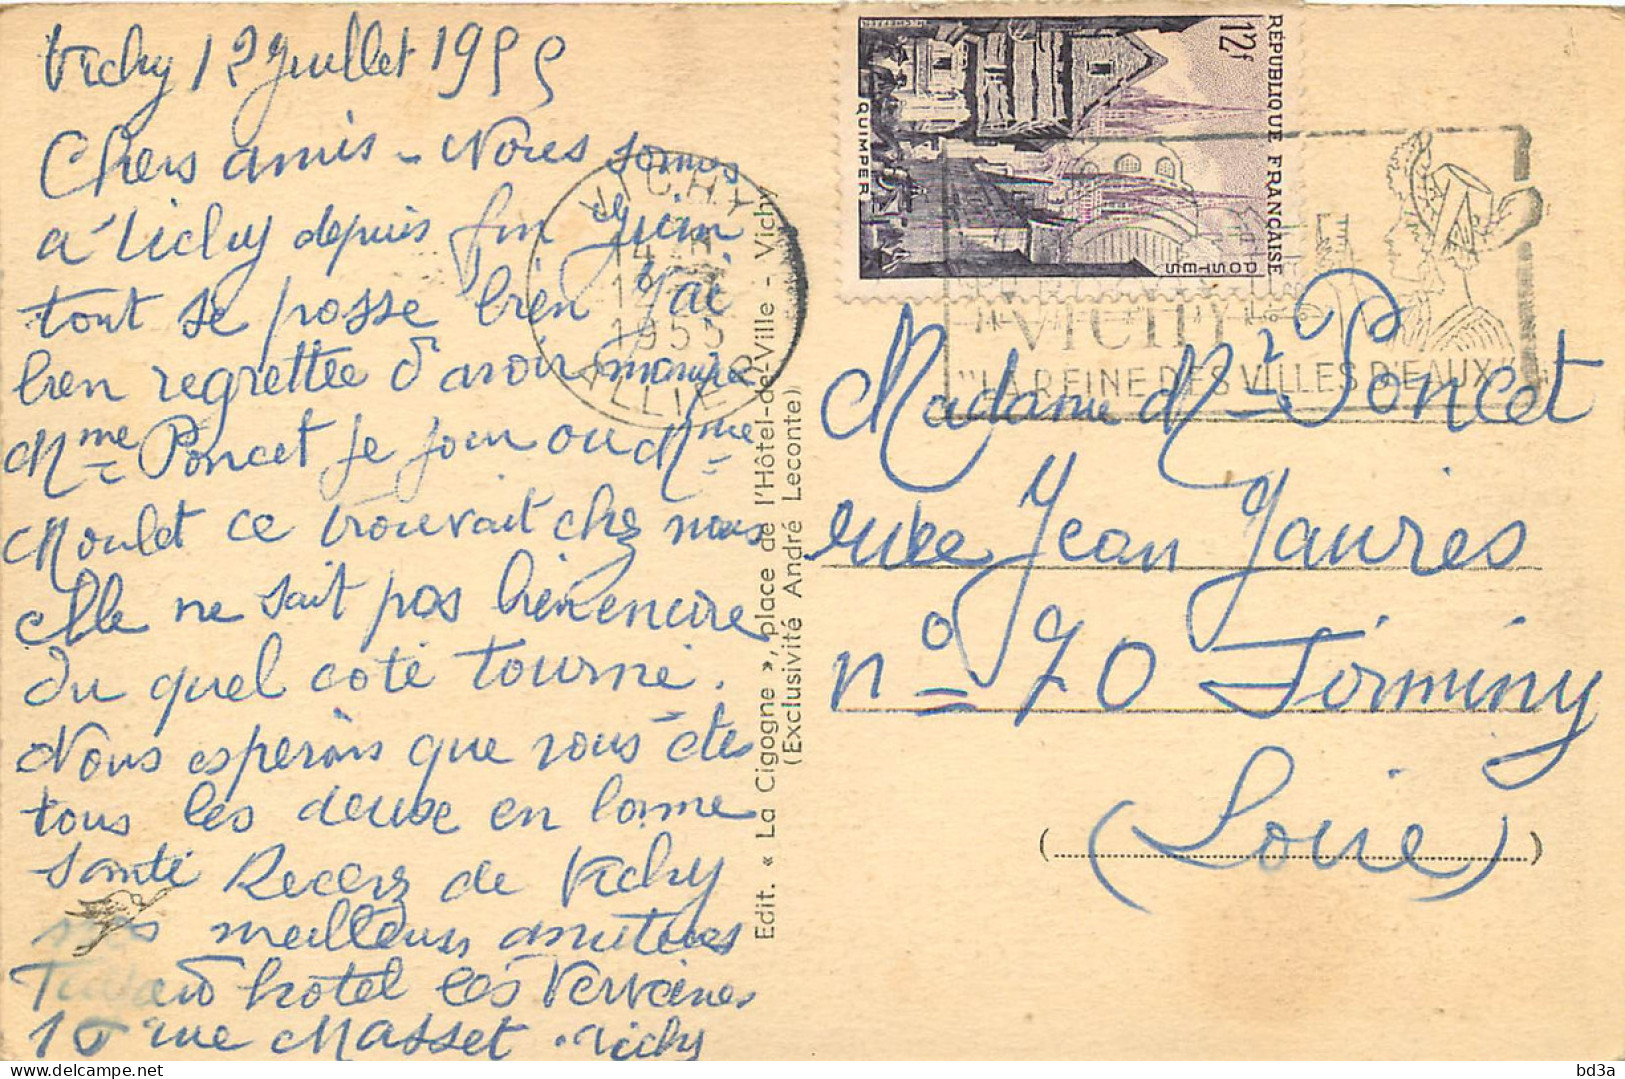 Vichy 12 Juillet 1955
Chers amis - Nous somes
a Vichy depuis fin Juin
tout se passe bien j'ai
bien regrettée d'avoir manqué
Mme Poncet le jour ou Mme
Moulet ce trouvait chez nous
elle ne sait pas bien encore
du quel coté tourné.
Nous esperons que vous êtes
tous les deux en bonne
santé Recevez de Vichy
nos meilleurs amitiées
hotel les Verveines
10 rue Masset Vichy
VICHY
14 H
12
1955
ALLIER
Edit. « La Cigogne », place de l'Hôtel-de-Ville - Vichy
(Exclusivité André Leconte)
REPUBLIQUE FRANÇAISE
12f
POSTES
QUIMPER
VICHY
"LA REINE DES VILLES D'EAUX"
Madame Mr Poncet
rue Jean Jaures
no 70 Firminy
(Loire)
bd3a